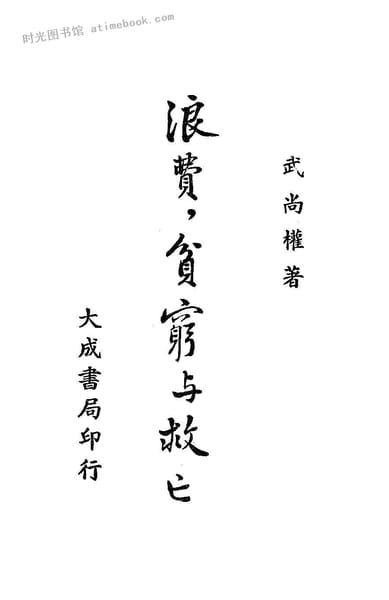 时光图书馆 atimebook.com
武尚權著
浪費，貧窮与救亡
大成書局印行